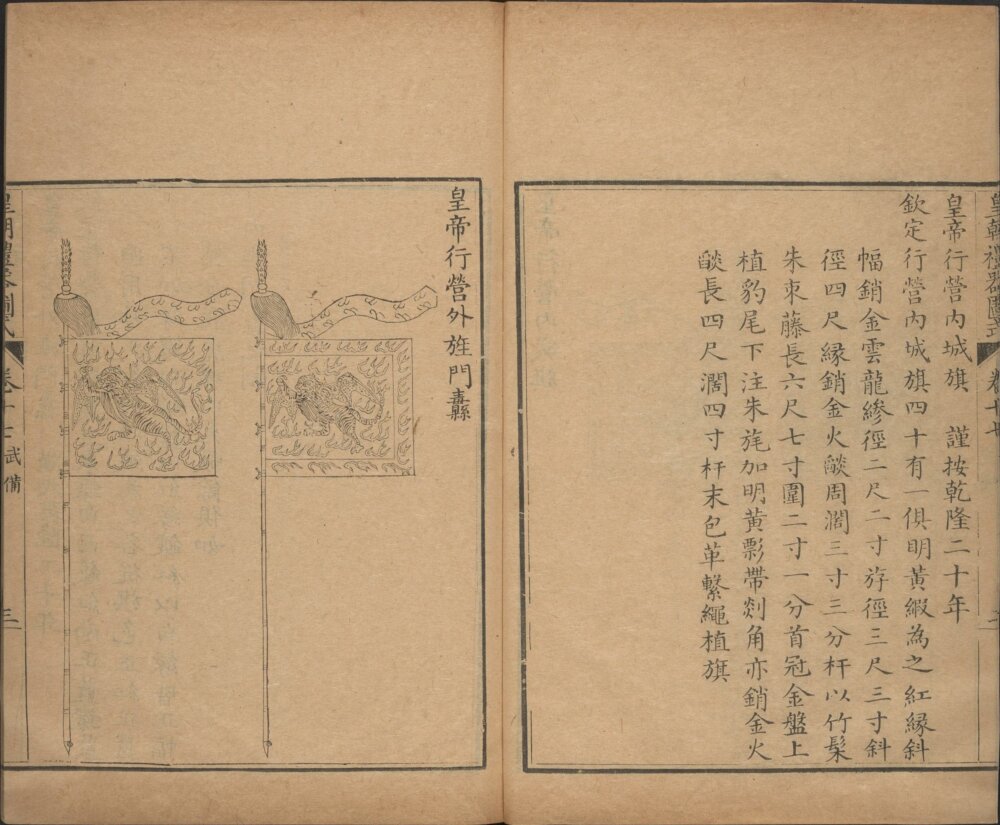 皇朝禮器圖式
皇帝行營內城旗　謹按乾隆二十年
欽定行營內城旗四十有一俱明黃緞為之紅緣斜
幅銷金雲龍縿徑二尺二寸斿徑三尺三寸斜
徑四尺緣銷金火燄周濶三寸三分杆以竹髹
朱朿藤長六尺七寸圍二寸一分首冠金盤上
植豹尾下注朱旄加明黃影帶剡角亦銷金火
燄長四尺濶四寸杆末包革繫繩植旗
皇帝行營外旌門纛
卷十七 武備
三